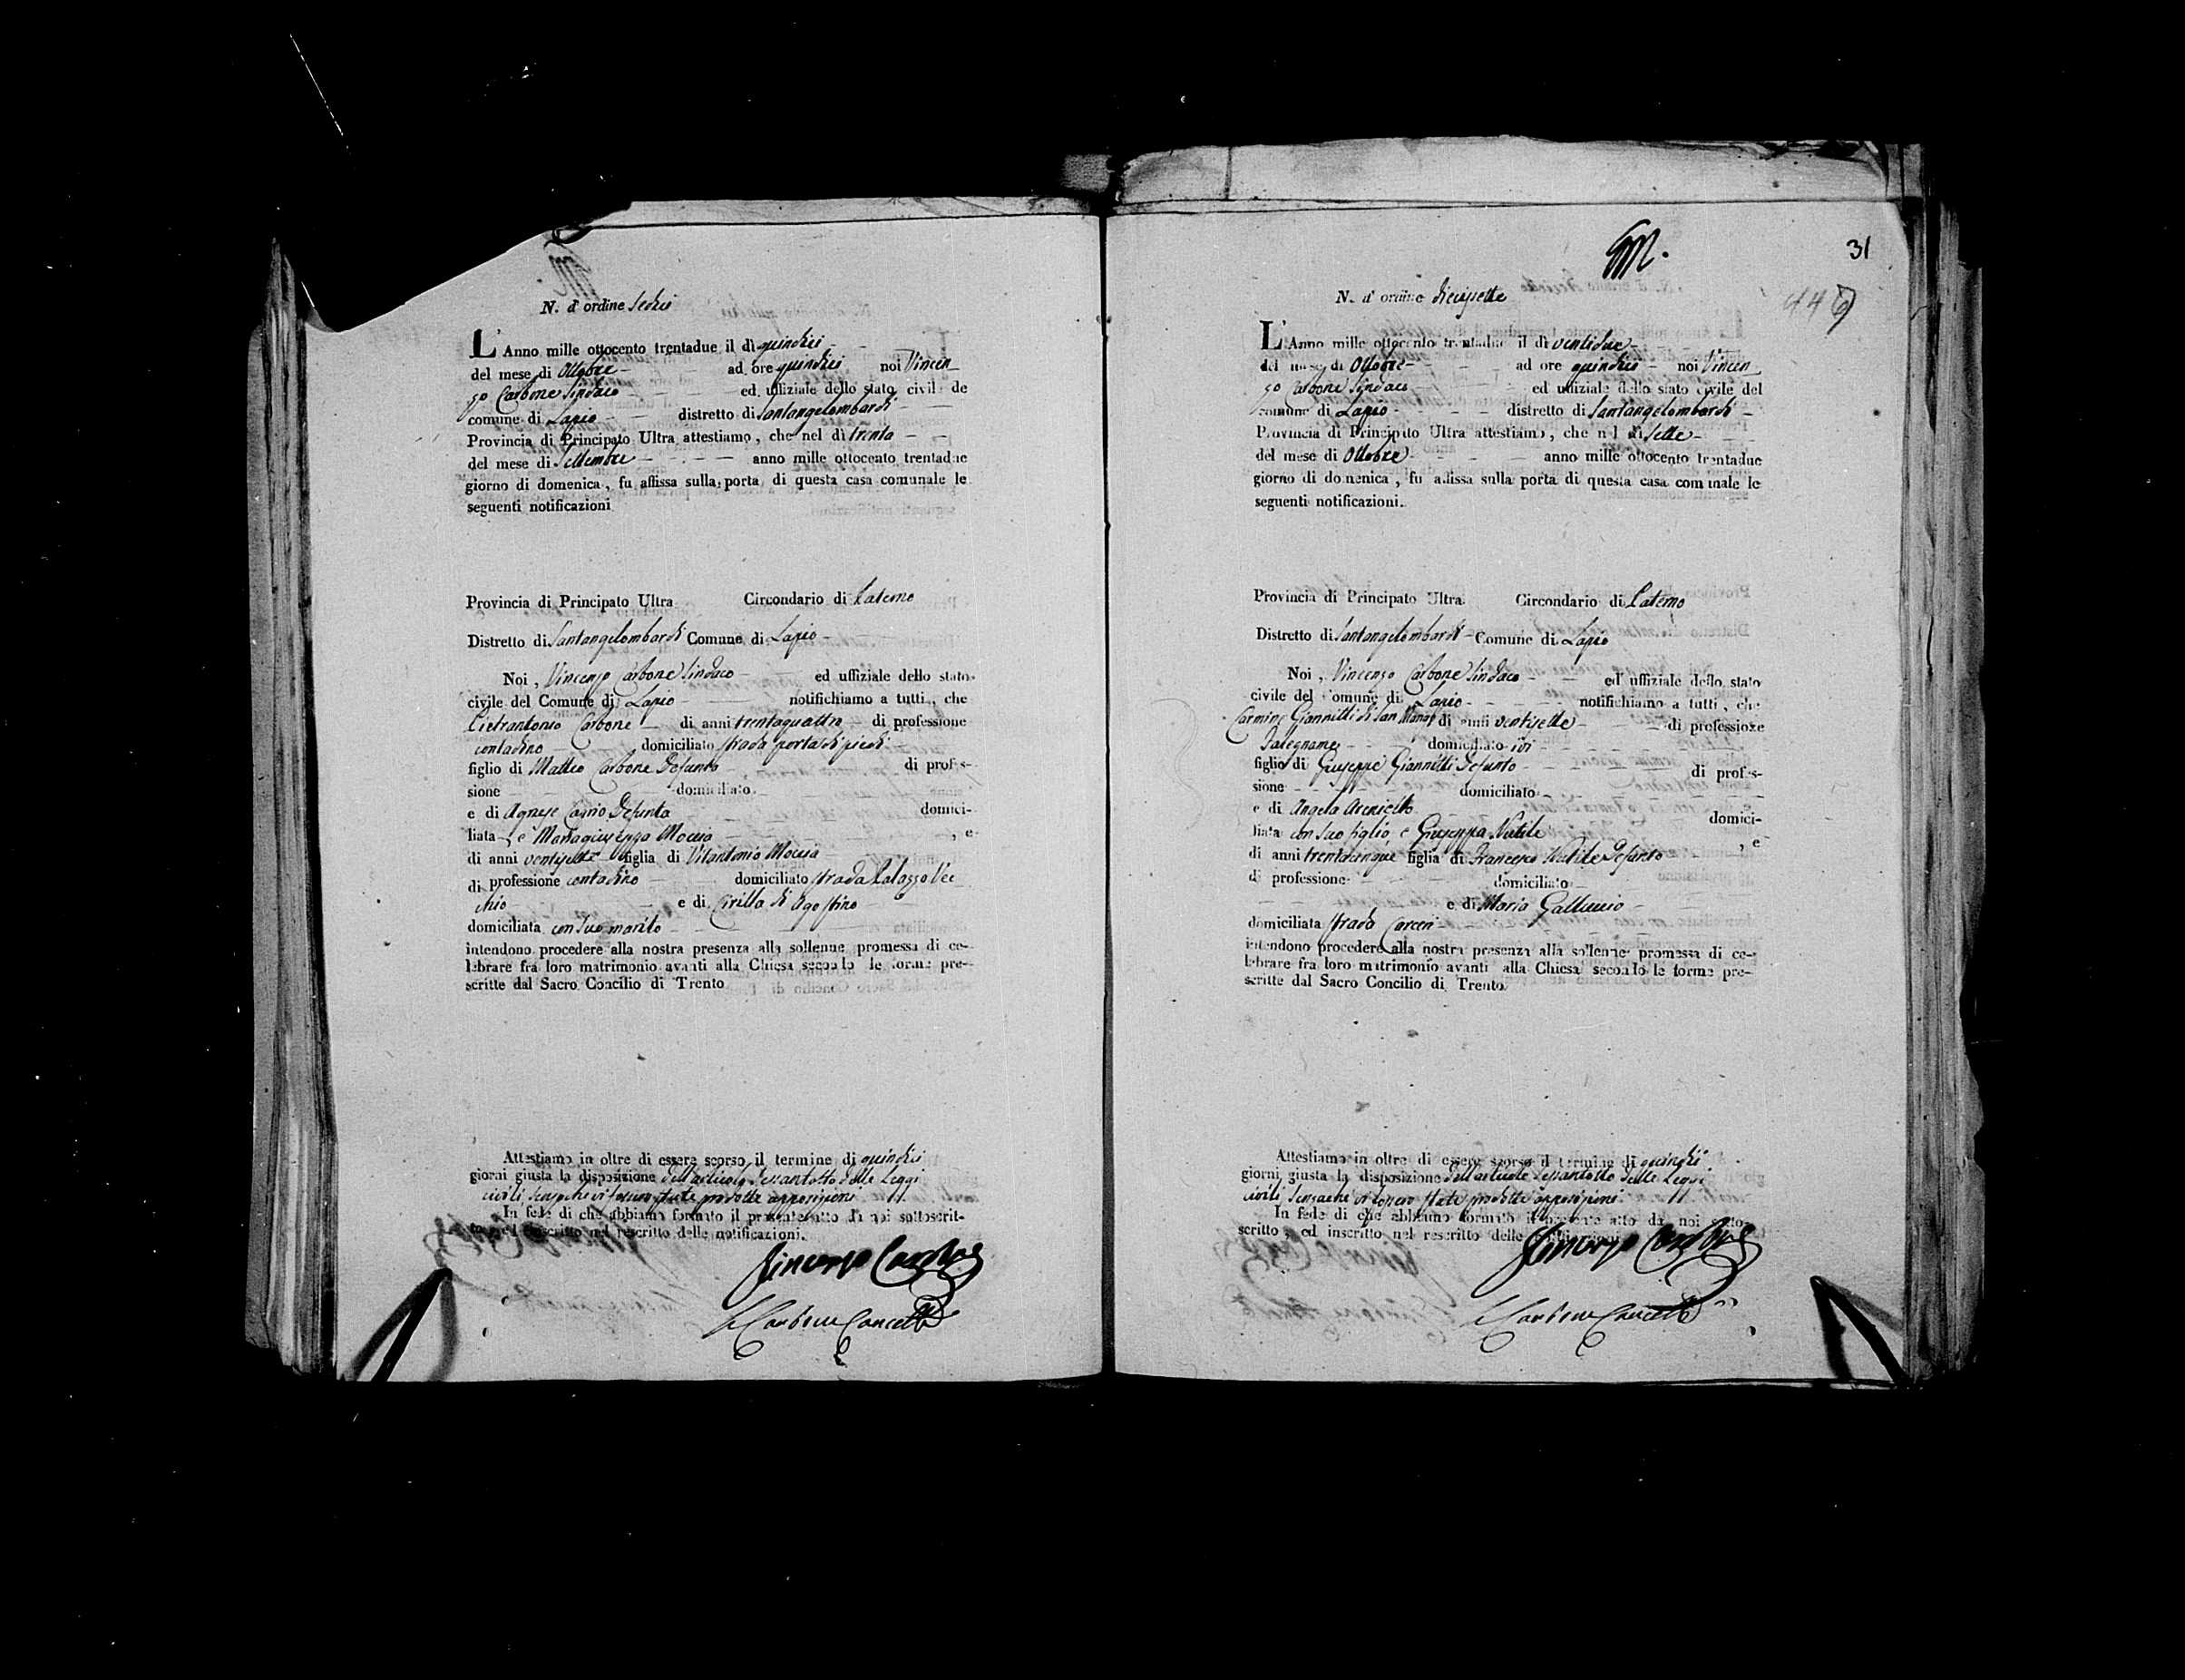 N. d'ordine Sedici
L'Anno mille ottocento trentadue il dì quindici
del mese di Ottobre ad ore quindici noi Vincen
zo Carbone Sindaco ed uffiziale dello stato civile de
comune di Lapio distretto di Santangelombardi
Provincia di Principato Ultra attestiamo, che nel dì trenta
del mese di Settembre anno mille ottocento trentadue
giorno di domenica, fu affissa sulla porta di questa casa comunale le
seguenti notificazioni
Provincia di Principato Ultra Circondario di Paterno
Distretto di Santangelombardi Comune di Lapio
Noi, Vincenzo Carbone Sindaco ed uffiziale dello stato
civile del Comune di Lapio notifichiamo a tutti, che
Pietrantonio Carbone di anni trentaquattro di professione
contadino domiciliato strada porta di piedi
figlio di Matteo Carbone Defunto di profes-
sione domiciliato
e di Agnese Defunta domici-
liata e Mariagiuseppa Moccia , e
di anni ventisette figlia di Vitantonio Moccia
di professione contadino domiciliato strada Palazzo Vec
chio e di Cirilla di Agostino
domiciliata con suo marito
intendono procedere alla nostra presenza alla sollenne promessa di ce-
lebrare fra loro matrimonio avanti alla Chiesa secondo le forme pre-
scritte dal Sacro Concilio di Trento
Attestiamo in oltre di essere scorso il termine di quindici
giorni giusta la disposizione dell'articolo Sessantotto delle Leggi
civili senzache vi fossero state prodotte opposizioni
In fede di che abbiamo formato il presente atto da noi sottoscrit-
inscritto nel rescritto delle notificazioni.
Vincenzo Carbone
Carbone Cancell
31
N. d'ordine diecisette
449
L'Anno mille ottocento trentadue il dì ventidue
del mese di Ottobre ad ore quindici noi Vincen
zo Carbone Sindaco ed uffiziale dello stato civile del
comune di Lapio distretto di Santangelombardi
Provincia di Principato Ultra attestiamo, che nel dì Sette
del mese di Ottobre anno mille ottocento trentadue
giorno di domenica, fu affissa sulla porta di questa casa comunale le
seguenti notificazioni.
Provincia di Principato Ultra. Circondario di Paterno
Distretto di Santangelombardi Comune di Lapio
Noi, Vincenzo Carbone Sindaco ed uffiziale dello stato
civile del Comune di Lapio notifichiamo a tutti, che
Carmine Giannitti di San Mango di anni ventisette di professione
Falegname domiciliato ivi
figlio di Giuseppe Giannitti Defunto di profes-
sione domiciliato
e di Angela domici-
liata con suo figlio, e Giuseppa Nutile , e
di anni trentacinque figlia di Francesco Nutile Defunto
di professione domiciliato
e di Maria Galluccio
domiciliata strada Carceri
intendono procedere alla nostra presenza alla sollenne promessa di ce-
lebrare fra loro matrimonio avanti alla Chiesa secondo le forme pre-
scritte dal Sacro Concilio di Trento.
Attestiamo in oltre di essere scorso il termine di quindici
giorni giusta la disposizione dell'articolo Sessantotto delle Leggi
civili senzache vi fossero state prodotte opposizioni
In fede di che abbiamo formato il presente atto da noi sotto-
scritto, ed inscritto nel rescritto delle
Vincenzo Carbone
Carbone Cancell